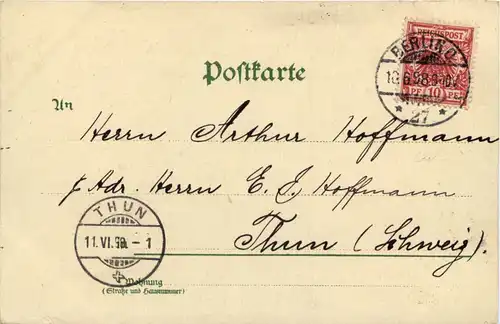 REICHSPOST
PF 10 PF
BERLIN
27
Postkarte
An
Herrn Arthur Hoffmann
p. Adr. Herrn E. J. Hoffmann
Thun (Schweiz)
THUN
11.VI.98. – 1
Wohnung
(Straße und Hausnummer)